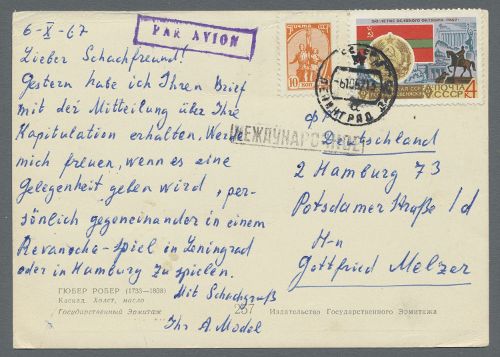 6-X-67
PAR AVION
Lieber Schachfreund!
Gestern habe ich Ihren Brief
mit der Mitteilung über Ihre
Kapitulation erhalten. Werde
mich freuen, wenn es eine
Gelegenheit geben wird, per-
sönlich gegeneinander in einem
Revanche-spiel in Leningrad
oder in Hamburg zu spielen.
Mit Schachgruß
Ihr A Model
ГЮБЕР РОБЕР (1733—1808)
Каскад. Холст, масло
Государственный Эрмитаж
257
Издательство Государственного Эрмитажа
ПОЧТА СССР
10 КОП
50-ЛЕТИЕ ВЕЛИКОГО ОКТЯБРЯ 1967
ПОЧТА
СССР
4
ЛЕНИНГРАД
МЕЖДУНАРОДНОЕ
Deutschland
2 Hamburg 73
Potsdamer Straße 1d
H-n
Gottfried Melzer